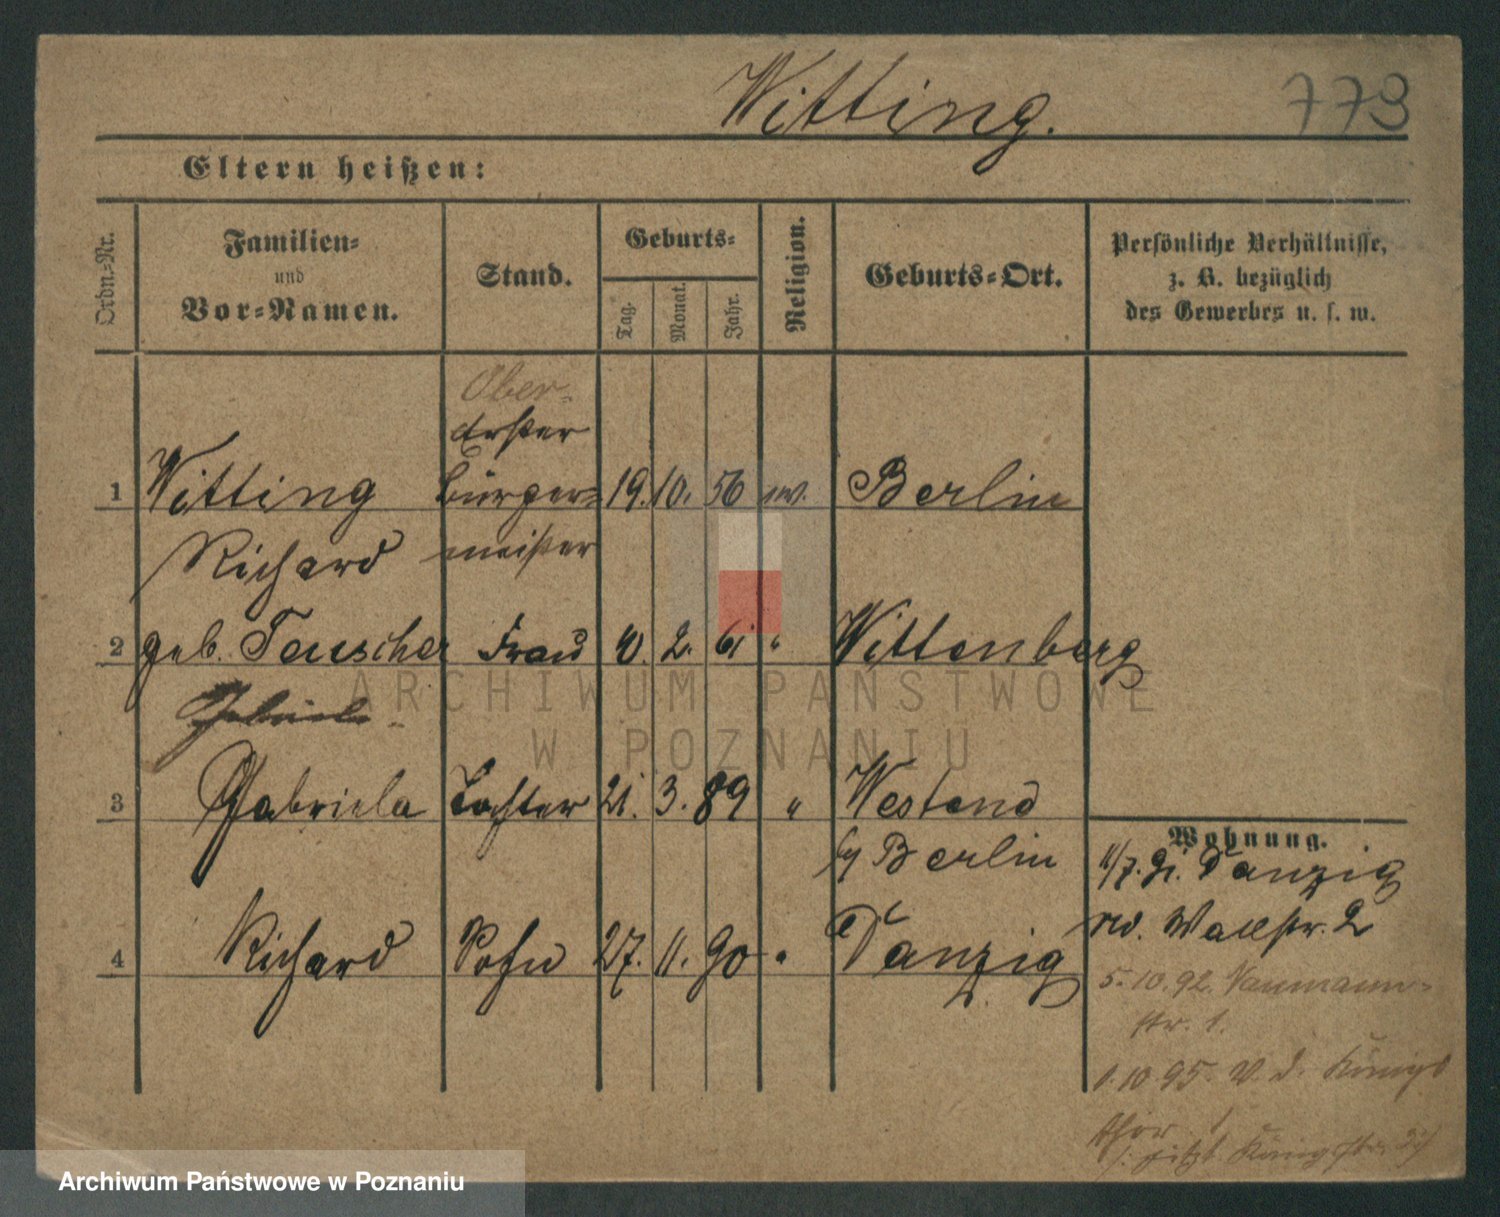 Witting.
773
Eltern heißen:
Ordn.-Nr.
Familien-
und
Vor-Namen.
Stand.
Geburts-
Tag.
Monat.
Jahr.
Religion.
Geburts-Ort.
Persönliche Verhältnisse,
z. B. bezüglich
des Gewerbes u. s. w.
Ober-
Erster
1 Witting Bürger- 19. 10. 56 ev. Berlin
Richard meister
2 geb. Teuscher Frau 2. 61 " Wittenberg
Gabriele
3 Gabriela Tochter 21. 3. 89 " Westend
b/ Berlin
4 Richard Sohn 27. 11. 90 " Danzig
Wohnung.
11/7. 91. Danzig
Wallstr. 2
5. 10. 92. Naumann-
str. 1.
1. 10 95. V. d. Königs
thor 1
j. jetzt Königstr.
ARCHIWUM PAŃSTWOWE
W POZNANIU
Archiwum Państwowe w Poznaniu